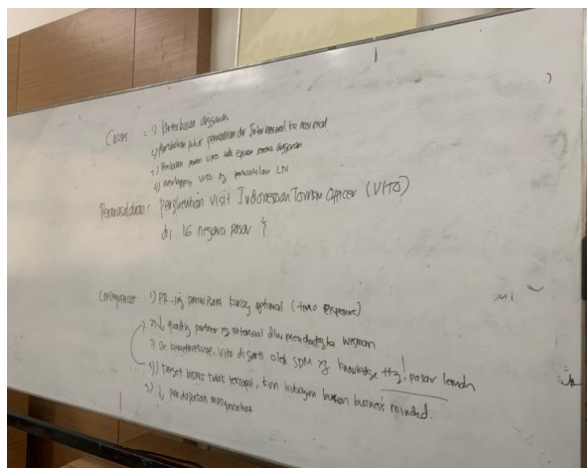 Causes : 1) Keterbatasan anggaran
2) Perubahan jalur pemasaran dr Internasional ke nasional
3) Perubahan peran VITO anggaran
4) overlapping VITO dg perwakilan LN
Permasalahan : Penghentian Visit Indonesian Tourism Officer (VITO)
di 16 negara pasar
Consequences : 1) PR-ing pariwisata kurang optimal ( exposure)
2) ↓ quality partner yg potensial dlm mendatangkan wisman
3) VITO diganti oleh SDM yg knowledge ttg pasar lemah
4) target bisnis tidak tercapai, krn hubungan bukan business minded.
5) ↓ pendapatan masyarakat